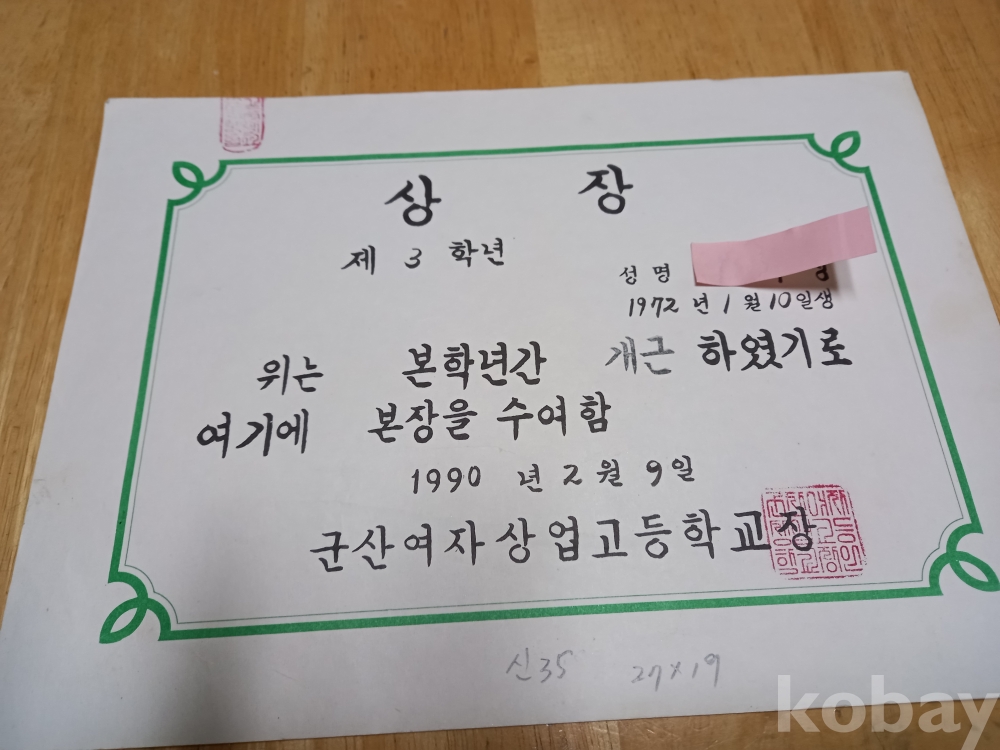 상 장
제 3 학년
성명
1972 년 1 월 10일생
위는 본학년간 개근 하였기로
여기에 본장을 수여함
1990 년 2 월 9일
군산여자상업고등학교장
신35 27×19
kobay